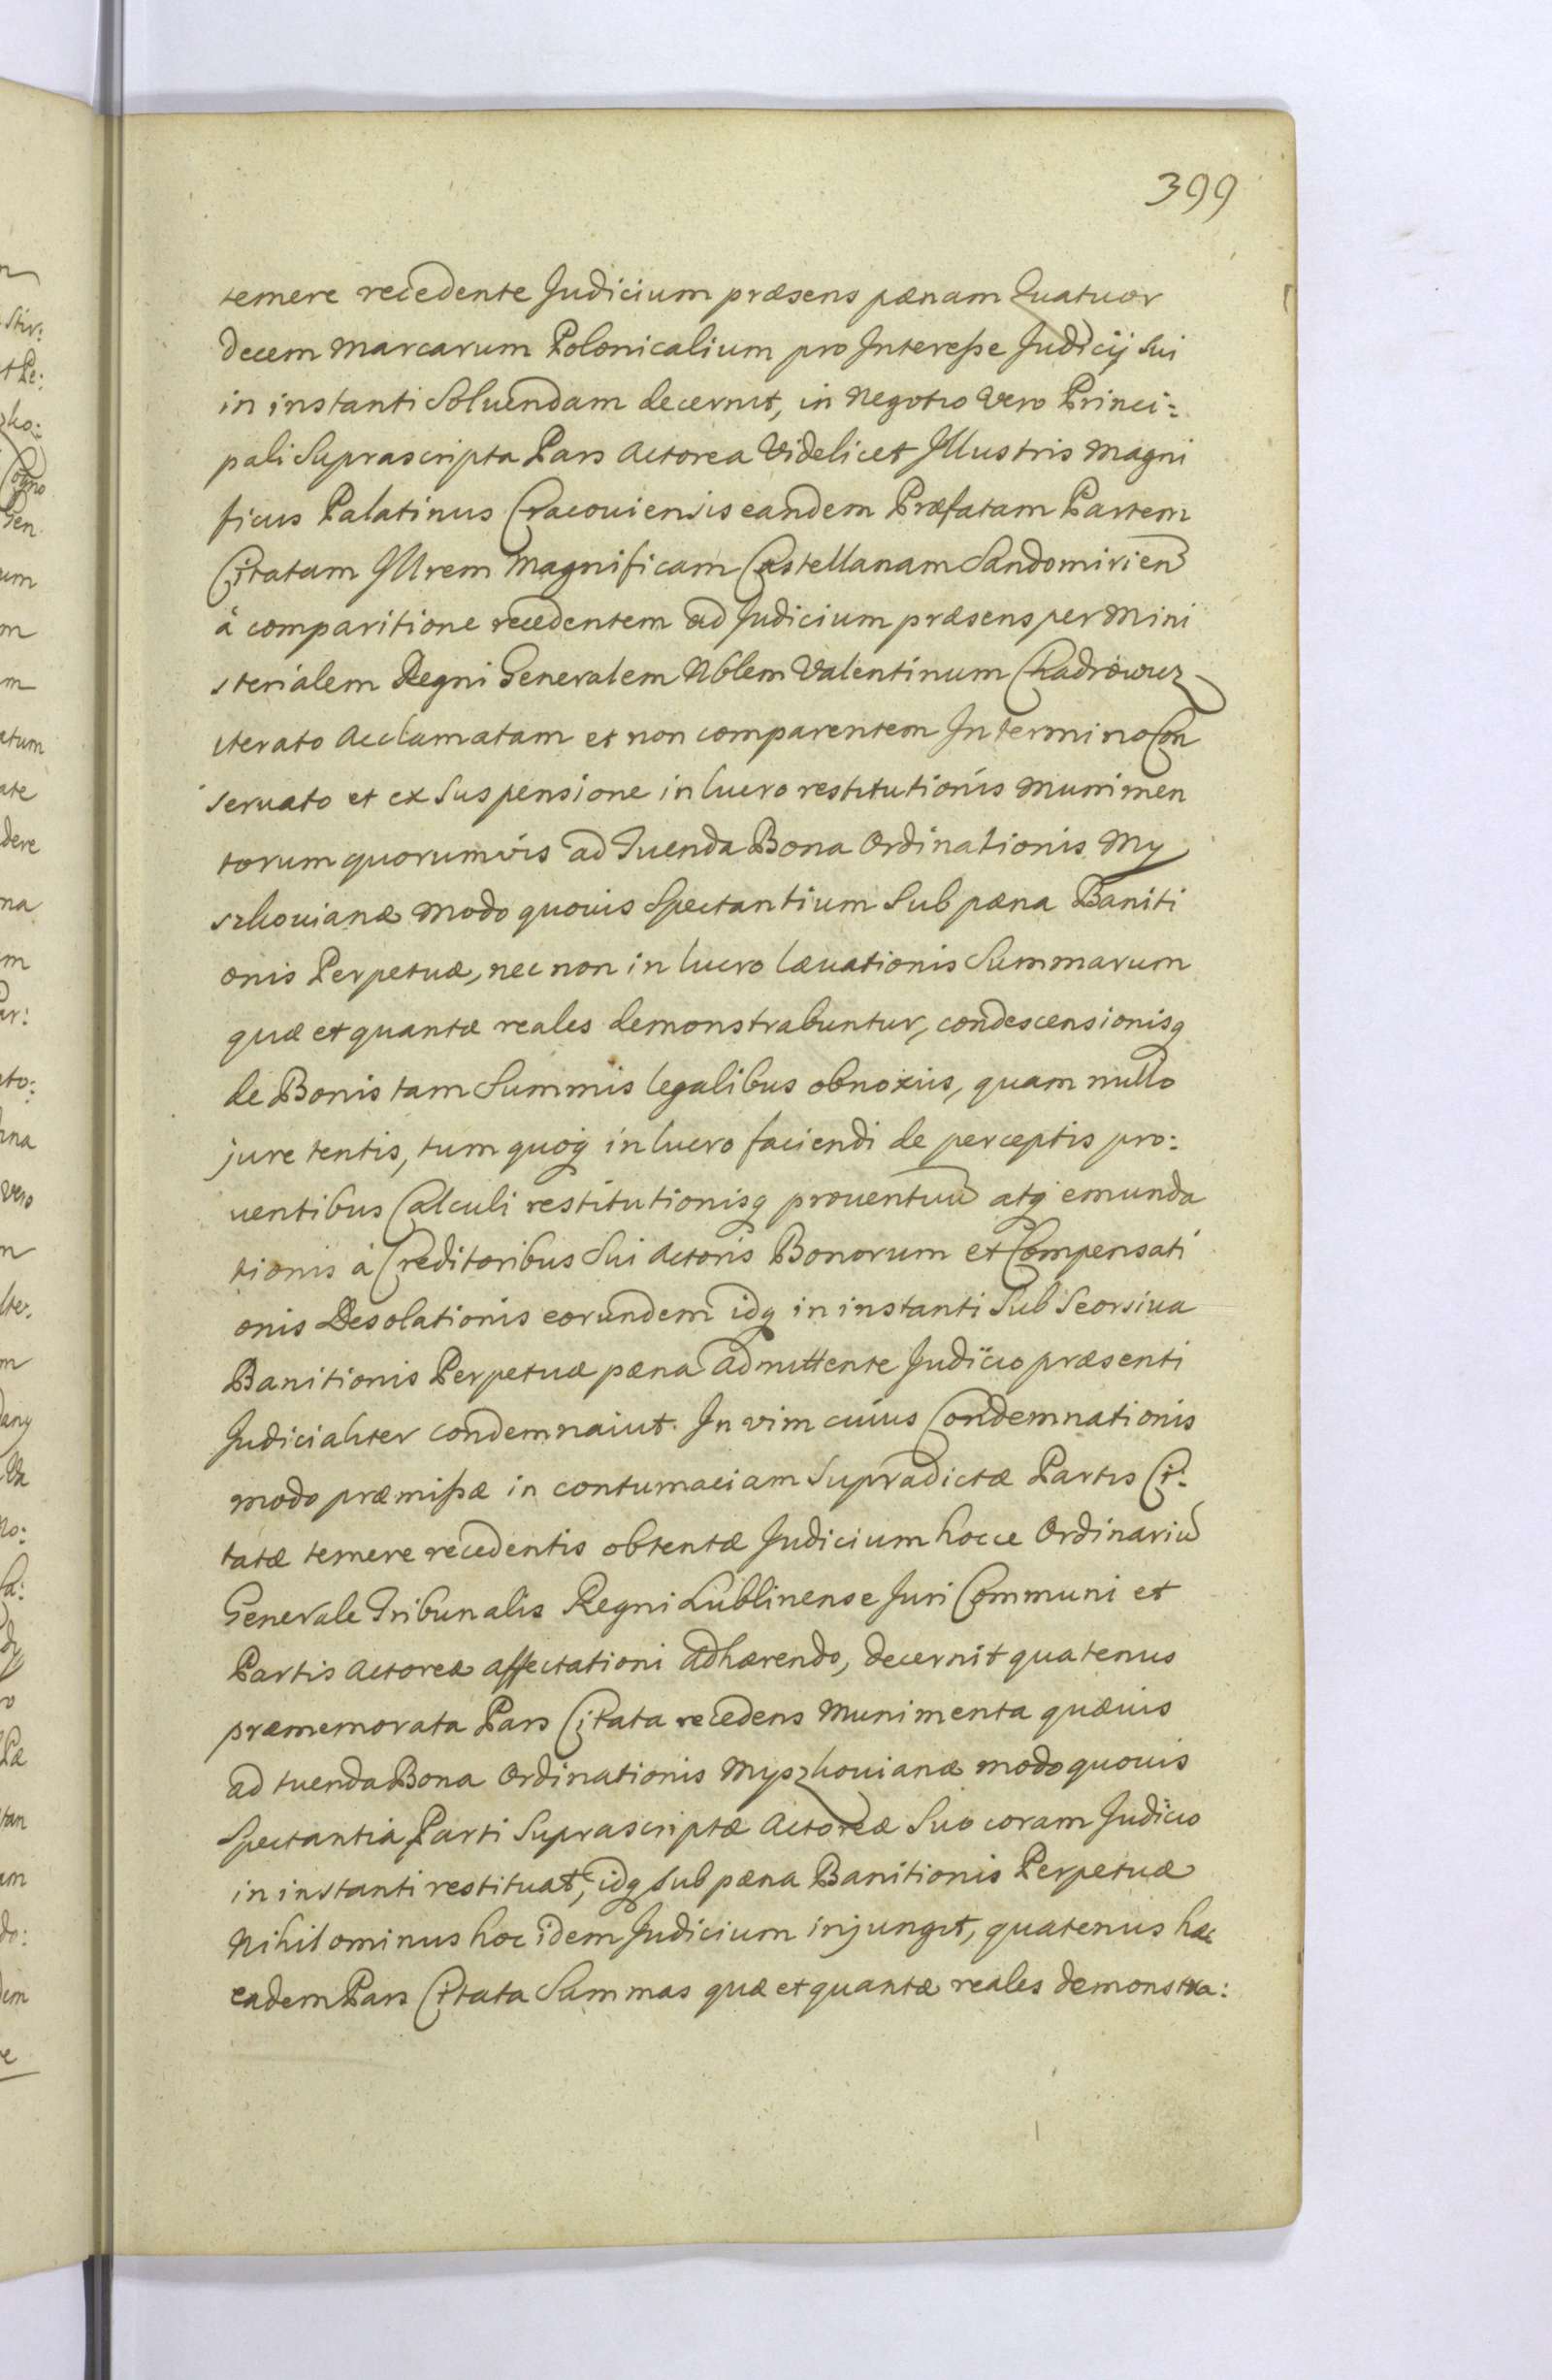 399
temere recedente Judicium præsens pænam Quatuor
decem Marcarum Polonicalium pro Interesse Judicij sui
in instanti Soluendam decernit, in Negotio Vero Princi:
pali Suprascripta Pars Actorea Videlicet Jllustris Magni
ficus Palatinus Cracouiensis eandem Præfatam Partem
Citatam Jllrem Magnificam Castellanam Sandomirien
à comparitione recedentem ad Judicium præsens per Mini
sterialem Regni Generalem Nblem Valentinum
iterato Acclamatam et non comparentem In termino Con
seruato et ex Suspensione in lucro restitutionis Munimen
torum quorumvis ad Tuenda Bona Ordinationis My
szkouianæ Modo quouis Spectantium Sub pæna Baniti
onis Perpetuæ, nec non in lucro læuationis Summarum
quæ et quantæ reales demonstrabuntur, condescensionisq
de Bonis tam Summis legalibus obnoxiis, quam nullo
jure tentis, tum quoq in lucro faciendi de perceptis pro:
uentibus Calculi restitutionisq prouentuu atq emunda
tionis à Creditoribus Sui Actoris Bonorum et Compensati
onis Desolationis eorundem idq in instanti Sub Seorsiua
Banitionis Perpetuæ pæna admittente Judicio præsenti
Judicialiter condemnaiut. In vim cuius Condemnationis
modo præmissæ in contumaciam Supradictæ Partis Ci:
tatæ temere recedentis obtentæ Judicium hocce Ordinariu
Generale Tribunalis Regni Lublinense Juri Communi et
Partis Actoreæ affectationi adhærendo, decernit quatenus
præmemorata Pars Citata recedens Munimenta quæuis
ad tuenda Bona Ordinationis Myszkouianæ modo quouis
Spectantia Parti Suprascriptæ Actoreæ Suo coram Judicio
in instanti restituat, idq sub pæna Banitionis Perpetuæ
Nihilominus hoc idem Judicium injungit, quatenus hæc
eadem Pars Citata Summas quæ et quantæ reales demonstra: